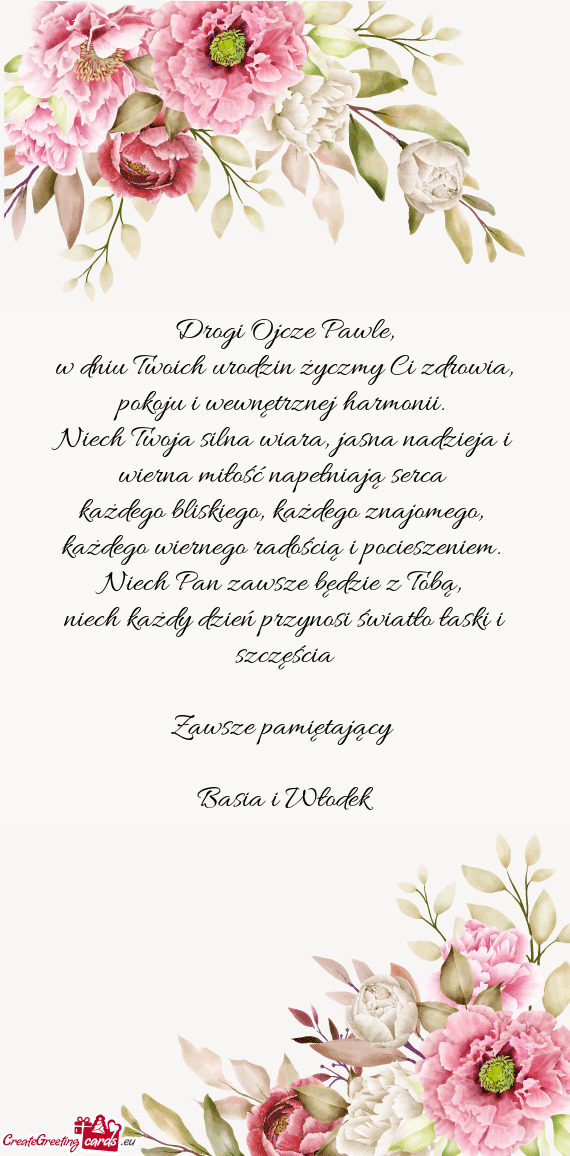 Drogi Ojcze Pawle,
w dniu Twoich urodzin życzmy Ci zdrowia,
pokoju i wewnętrznej harmonii.
Niech Twoja silna wiara, jasna nadzieja i
wierna miłość napełniają serca
każdego bliskiego, każdego znajomego,
każdego wiernego radością i pocieszeniem.
Niech Pan zawsze będzie z Tobą,
niech każdy dzień przynosi światło łaski i
szczęścia
Zawsze pamiętający
Basia i Włodek
CreateGreeting cards .eu